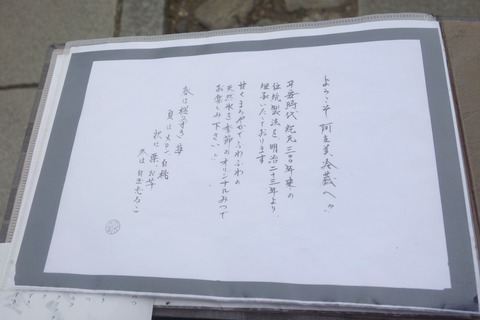 ようこそ 阿左美冷蔵へ
平安時代 紀元三〇〇年来の
伝統製法を明治二十三年より
継承いたしております
甘くまろやか ふわふわの
天然氷を季節のオリジナルみつで
お楽しみ下さい。
春は 桜 よもぎ 苺
夏は メロン 白桃
秋は 栗 お芋
冬は